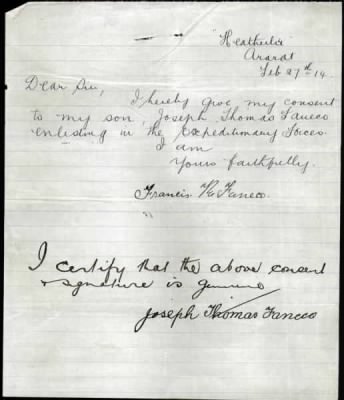 "Heatherlie"
Ararat
Feb 27th 14.
Dear Sir,
I hereby give my consent
to my son, Joseph Thomas Faneco
enlisting in the Expeditionary Forces.
I am
Yours faithfully.
Francis R. Faneco.
I certify that the above consent
+ signature is genuine
Joseph Thomas Faneco